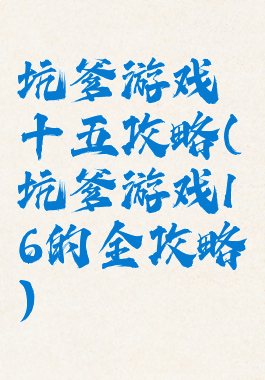 坑爹游戏
十五攻略(
坑爹游戏1
6的全攻略
)